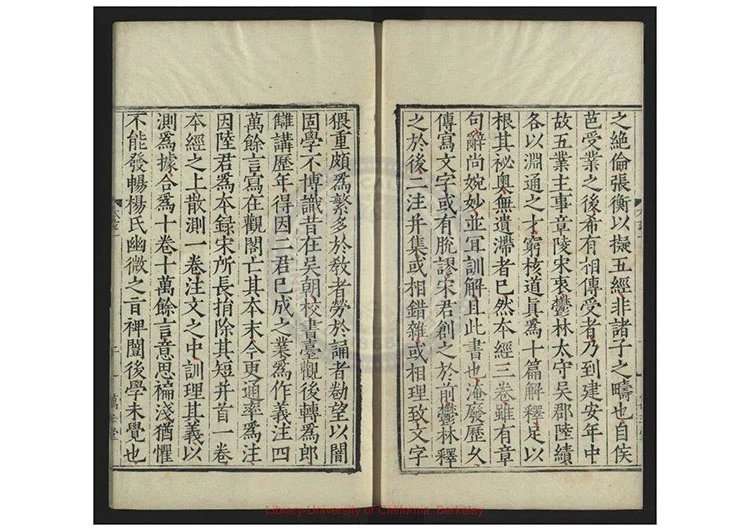 之絶倫張衡以擬五經非諸子之疇也自侯
芭受業之後希有相傳受者乃到建安年中
故五業主事章陵宋衷鬱林太守吳郡陸績
各以淵通之才窮核道真為十篇解釋足以
根其祕奧無遺滯者已然本經三卷雖有章
句辭尚婉妙並宜訓解且此書也淹廢歷久
傳寫文字或有脫謬宋君創之於前鬱林釋
之於後二注并集或相錯雜或相理致文字
猥重頗為繁多於教者勞於誦者勤望以闇
固學不博識昔在吳朝校書臺觀後轉為郎
讎講歷年得因二君已成之業為作義注四
萬餘言寫在觀閣亡其本末今更通率為注
因陸君為本録宋所長捐除其短并首一卷
本經之上散測一卷注文之中訓理其義以
測為據合為十卷十萬餘言意思褊淺猶懼
不能發暢楊氏幽微之旨裨闡後學未覺也
Library-University of California, Berkeley